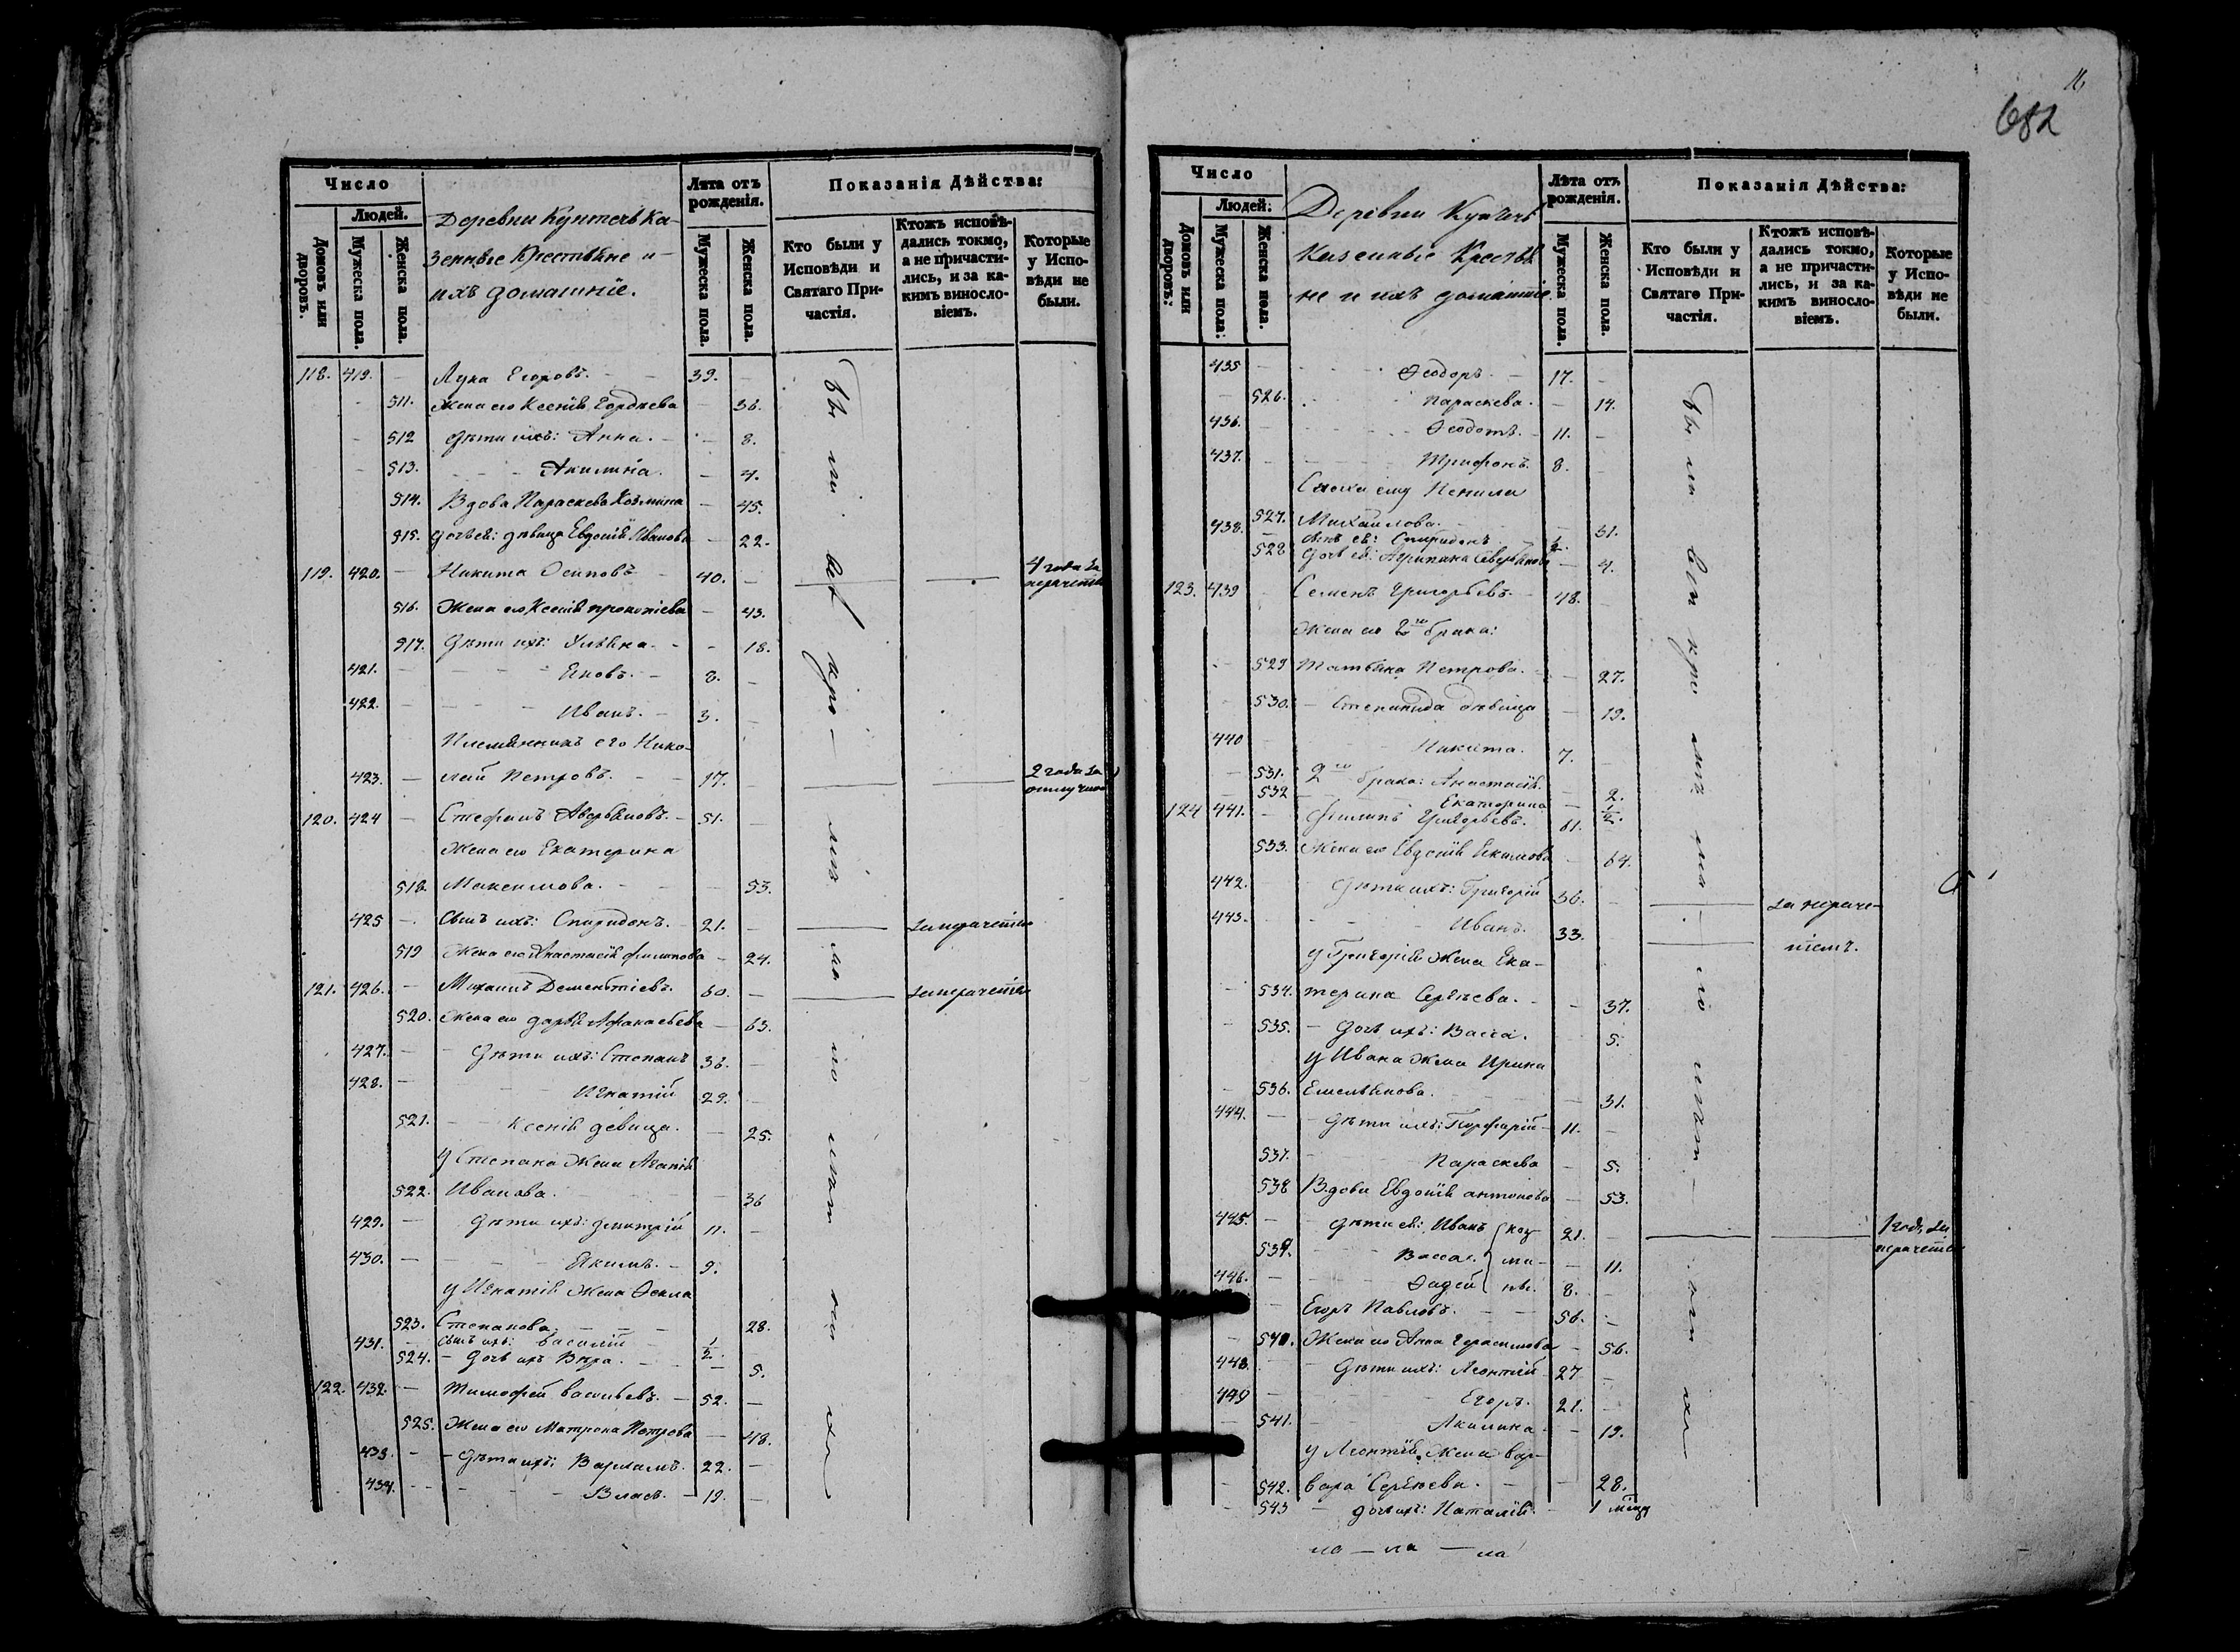 16
682
Число
Людей.
Домовъ или дворовъ.
Мужеска пола.
Женска пола.
Деревни Кунтечь Ка-
зенные Крестьяне и
ихъ домашніе.
Лѣта отъ рожденія.
Мужеска пола.
Женска пола.
Показанія Дѣйства:
Кто были у Исповѣди и Святаго Причастія.
Ктожъ исповѣдались токмо, а не причастились, и за какимъ винословіемъ.
Которые у Исповѣди не были.
118. 419. – Лука Егоровъ. – 39. –
511. Жена его Ксенія Гордѣева – 36.
512 Дѣти ихъ: Анна. – 8.
513. Акилина. – 4.
514. Вдова Параскева Козмина – 45.
515. Дочь ей: дѣвица Евдокія Иванова – 22.
119. 420. – Никита Осиповъ – 40. – 4 года за нераченіе
516. Жена его Ксенія Прокопіева – 43.
517. Дѣти ихъ: Ульяна – 18.
421. – Яковъ. – 8. –
422. – Иванъ. – 3. –
Племянникъ его Нико-
423. – лай Петровъ. – 17. – 2 года за отлучкою
120. 424 – Стефанъ Аверьяновъ. – 51. –
Жена его Екатерина
518. Максимова. – 53.
425 – Сынъ ихъ: Спиридонъ. – 21. – за нераченіемъ
519 Жена его Анастасія Филипова – 24.
121. 426. – Михаилъ Дементіевъ. 60. – за нераченіемъ
520. Жена его Дарья Афанасьева – 63.
427. – Дѣти ихъ: Степанъ 36. –
428. – Игнатій 29. –
521. – Ксенія девица. – 25.
У Степана Жена Агапія
522. Иванова. – 36
429. – Дѣти ихъ: Дмитрій 11. –
430. – Якимъ. – 9.
У Игнатія Жена Ѳекла
523. Степанова – 28.
431. – Сынъ ихъ: Василій – 1/2. –
524. – Дочь ихъ Вѣра. – 5.
122. 432. – Тимофей Васильевъ. – 52. –
525. Жена его Матрона Петрова – 48.
433. – Дѣти ихъ: Варламъ. 22. –
434. – Власъ. – 19. –
Число
Людей.
Домовъ или дворовъ.
Мужеска пола.
Женска пола.
Деревни Кунтечь
Казенные Крестья-
не и ихъ домашніе
Лѣта отъ рожденія.
Мужеска пола.
Женска пола.
Показанія Дѣйства:
Кто были у Исповѣди и Святаго Причастія.
Ктожъ исповѣдались токмо, а не причастились, и за какимъ винословіемъ.
Которые у Исповѣди не были.
435 – Ѳеодоръ. – 17. –
526. Параскева. – 14.
436. – Ѳеодотъ. – 11. –
437. – Трифонъ. 8. –
Сноха ему Неонила
527. Михайлова. – 31.
438. – Сынъ ей: Спиридонъ 1/2.
528 Дочь ей: Агрипина Северьянова – 4.
123. 439 – Семенъ Григорьевъ. – 48. –
Жена его 2го брака:
529 Татьяна Петрова. – 27.
530. – Степанида дѣвица – 19.
440 Никита. 7. –
531. 2го брака: Анастасія. – 2.
532 Екатерина – 1/2.
124 441. – Филипъ Григорьевъ. 61. –
533. Жена его Евдокія Якимова – 64.
442. – Дѣти ихъ: Григорій 36. – за нераче-
443. – Иванъ. 33. – ніемъ.
У Григорія Жена Ека-
534. терина Сергѣева. – 37.
535. – Дочь ихъ: Васса. 5.
У Ивана Жена Ирина
536. Емельянова. – 31.
444. – Дѣти ихъ: Порфирій – 11. –
537. – Параскева – 5.
538 Вдова Евдокія Антонова – 53.
445. – Дѣти ей: Иванъ Коз- 21. – 1 годъ за нераченіе
539. – Васса. ми- – 11.
446. – Ѳадей ны. 8. –
– Егоръ Павловъ. – 56. –
540. Жена его Анна Герасимова – 56.
448. – Дѣти ихъ: Леонтій 27 –
449 – Егоръ. 21. –
541. – Акилина – 19.
У Леонтія Жена Вар-
542. вара Сергѣева. – 28.
543 – Дочь ихъ: Наталія. – 1 мѣсяц